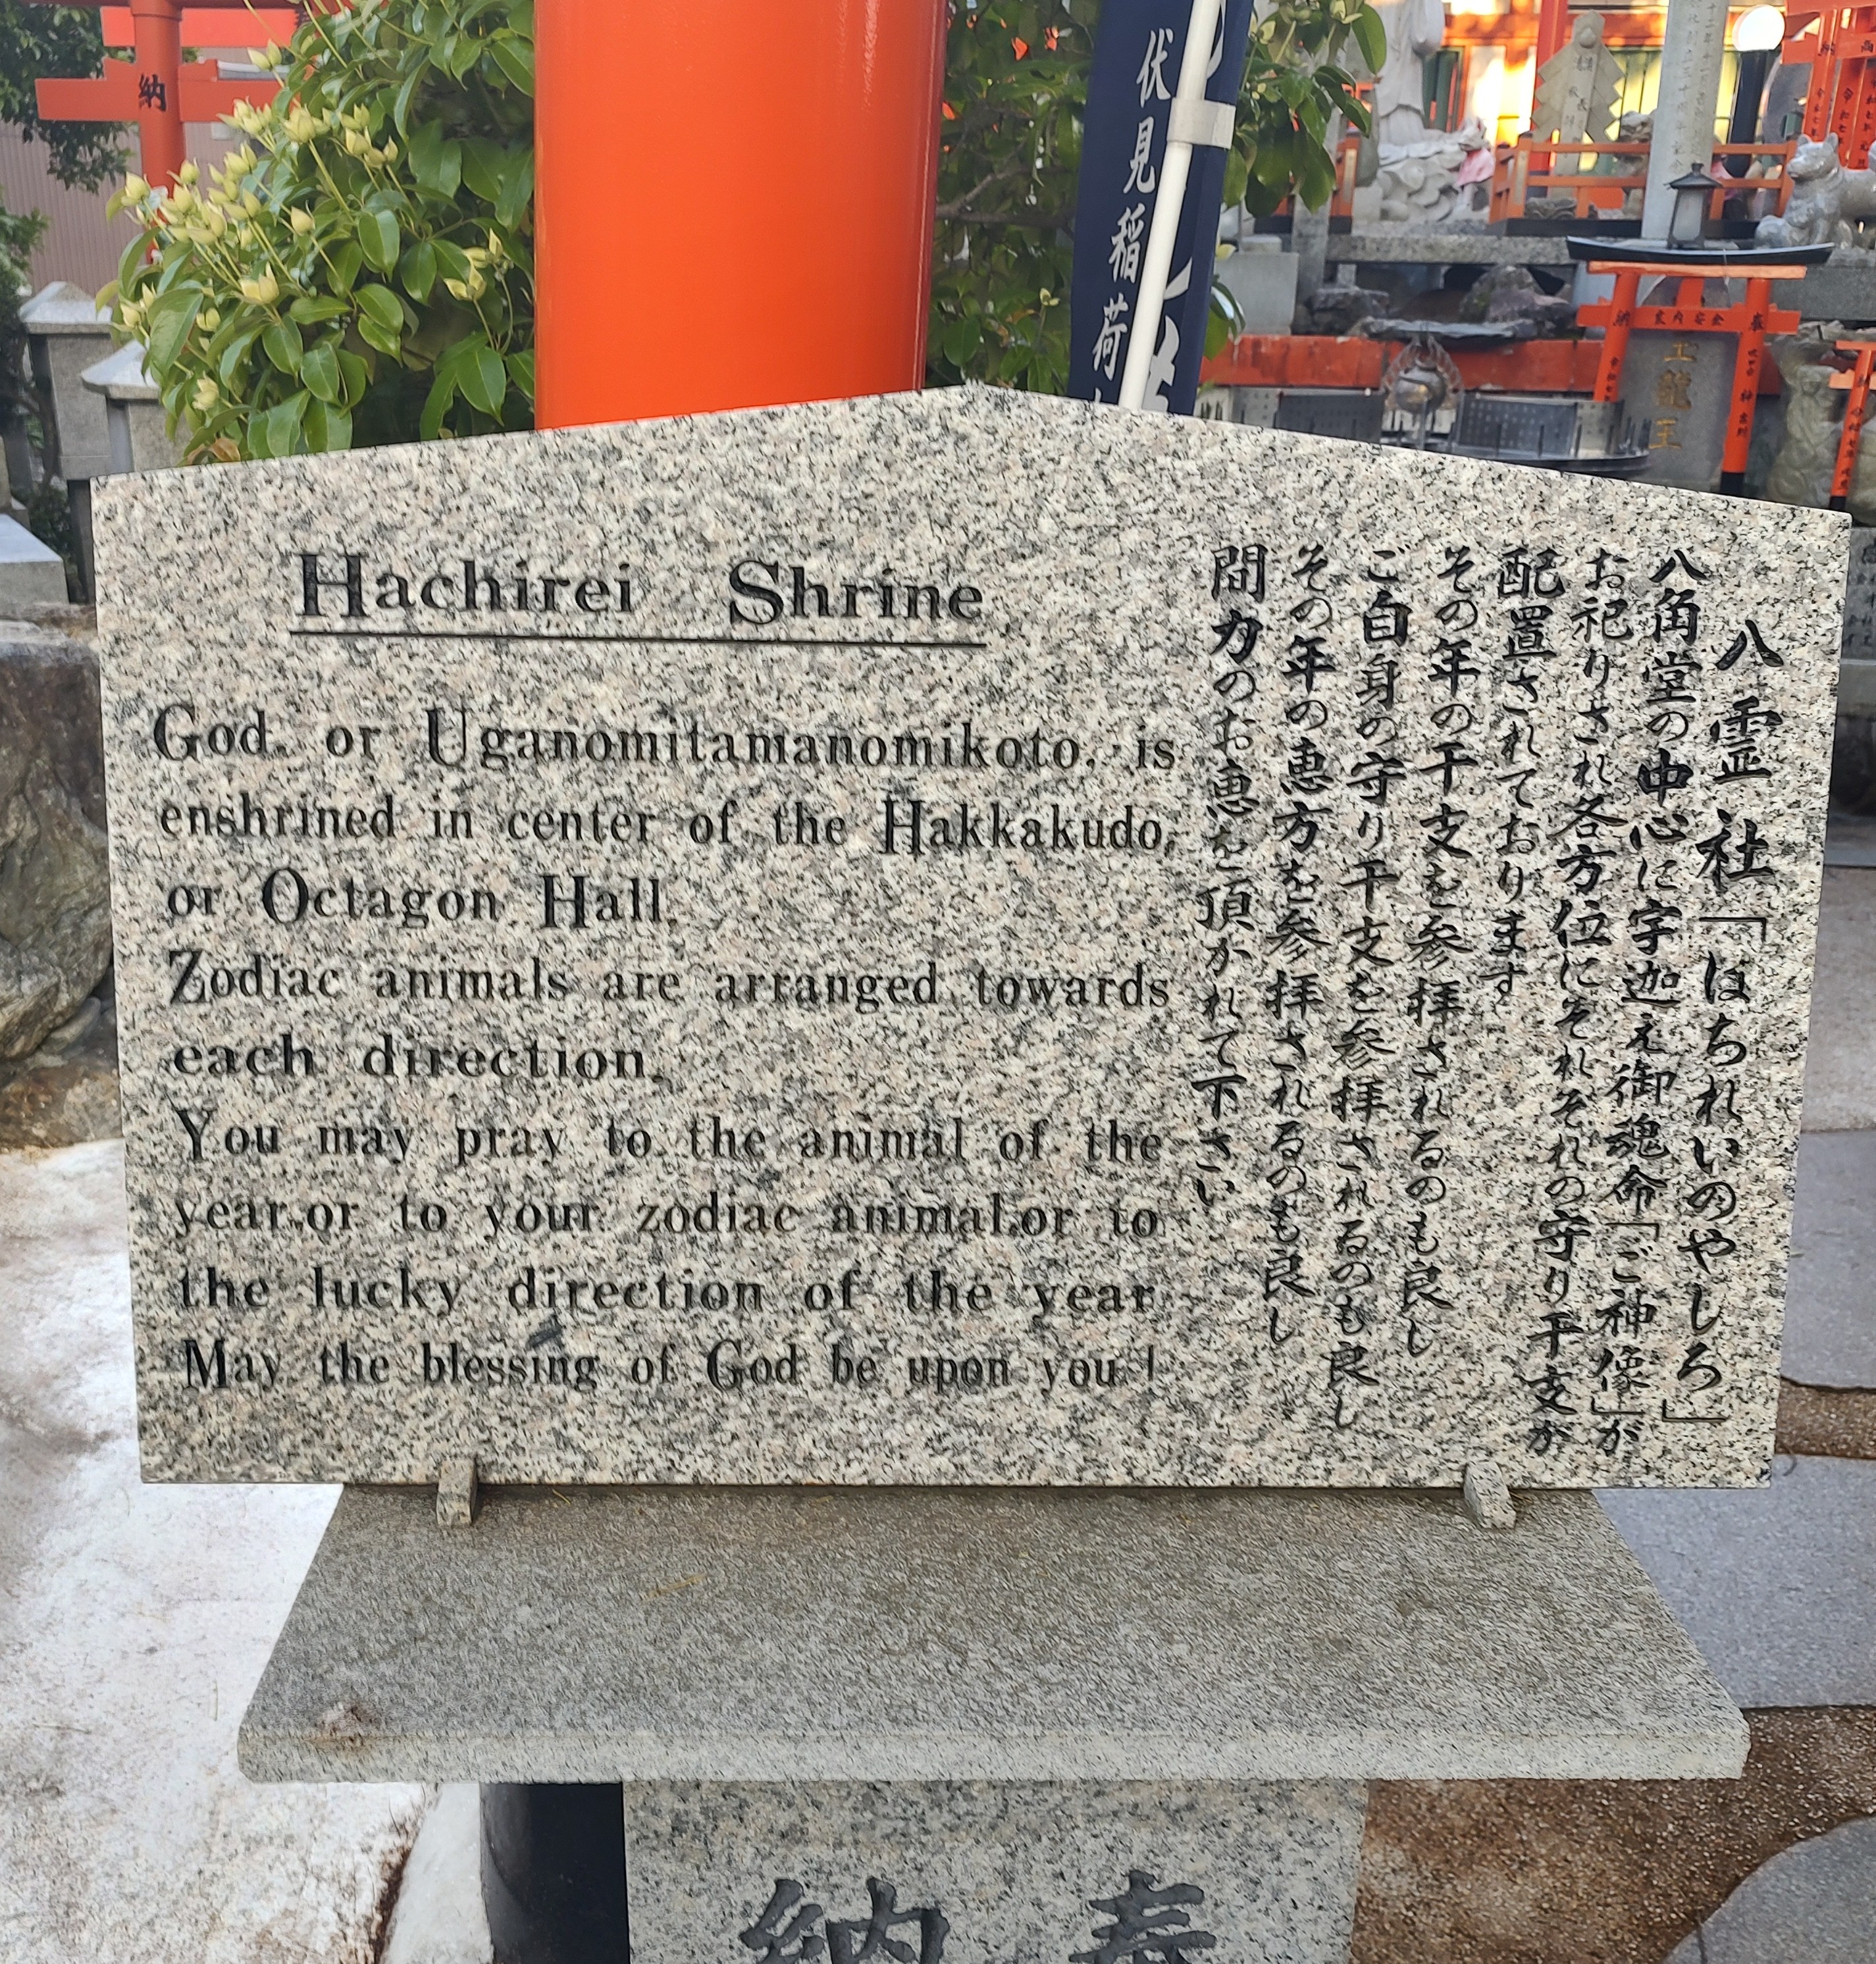 Hachirei Shrine
God, or Uganomitamanomikoto, is
enshrined in center of the Hakkakudo,
or Octagon Hall.
Zodiac animals are arranged towards
each direction.
You may pray to the animal of the
year,or to your zodiac animal,or to
the lucky direction of the year
May the blessing of God be upon you !
八霊社「はちれいのやしろ」
八角堂の中心に宇迦之御魂命「ご神像」が
お祀りされ各方位にそれぞれの守り干支が
配置されております
その年の干支を参拝されるのも良し
ご自身の守り干支を参拝されるのも良し
その年の恵方を参拝されるのも良し
間力のお恵を頂かれて下さい
奉納
伏見稲荷
納